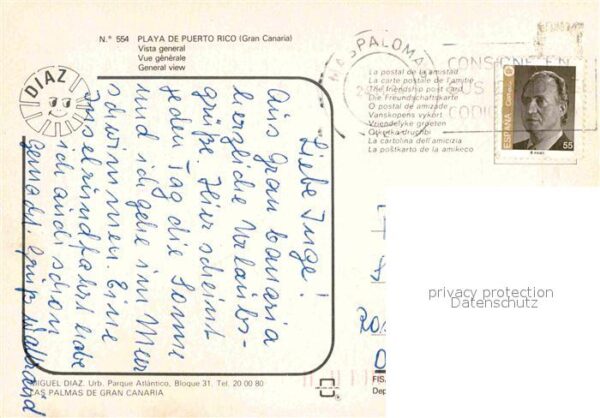 N.º 554 PLAYA DE PUERTO RICO (Gran Canaria)
Vista general
Vue générale
General view
DIAZ
La postal de la amistad
La carte postale de l'amitie
The friendship post card
Die Freundschaftskarte
O postal de amizade
Vanskopens vykört
Vriendelyke groeten
Otkritka druchbi
La cartolina dell'amicizia
La poŝtkarto de la amikeco
MASPALOMA
CONSIGNE EN
SUS
CODIG
ESPAÑA
Correos
55
Liebe Inge!
Aus Gran Canaria
herzliche Urlaubs-
grüße. Hier scheint
jeden Tag die Sonne
und ich gehe im Meer
schwimmen. Eine
Inselrundfahrt habe
ich auch schon
gemacht. Gruß Waltraud
MIGUEL DIAZ. Urb. Parque Atlántico, Bloque 31. Tel. 20 00 80
LAS PALMAS DE GRAN CANARIA
FISA
Dep
privacy protection
Datenschutz